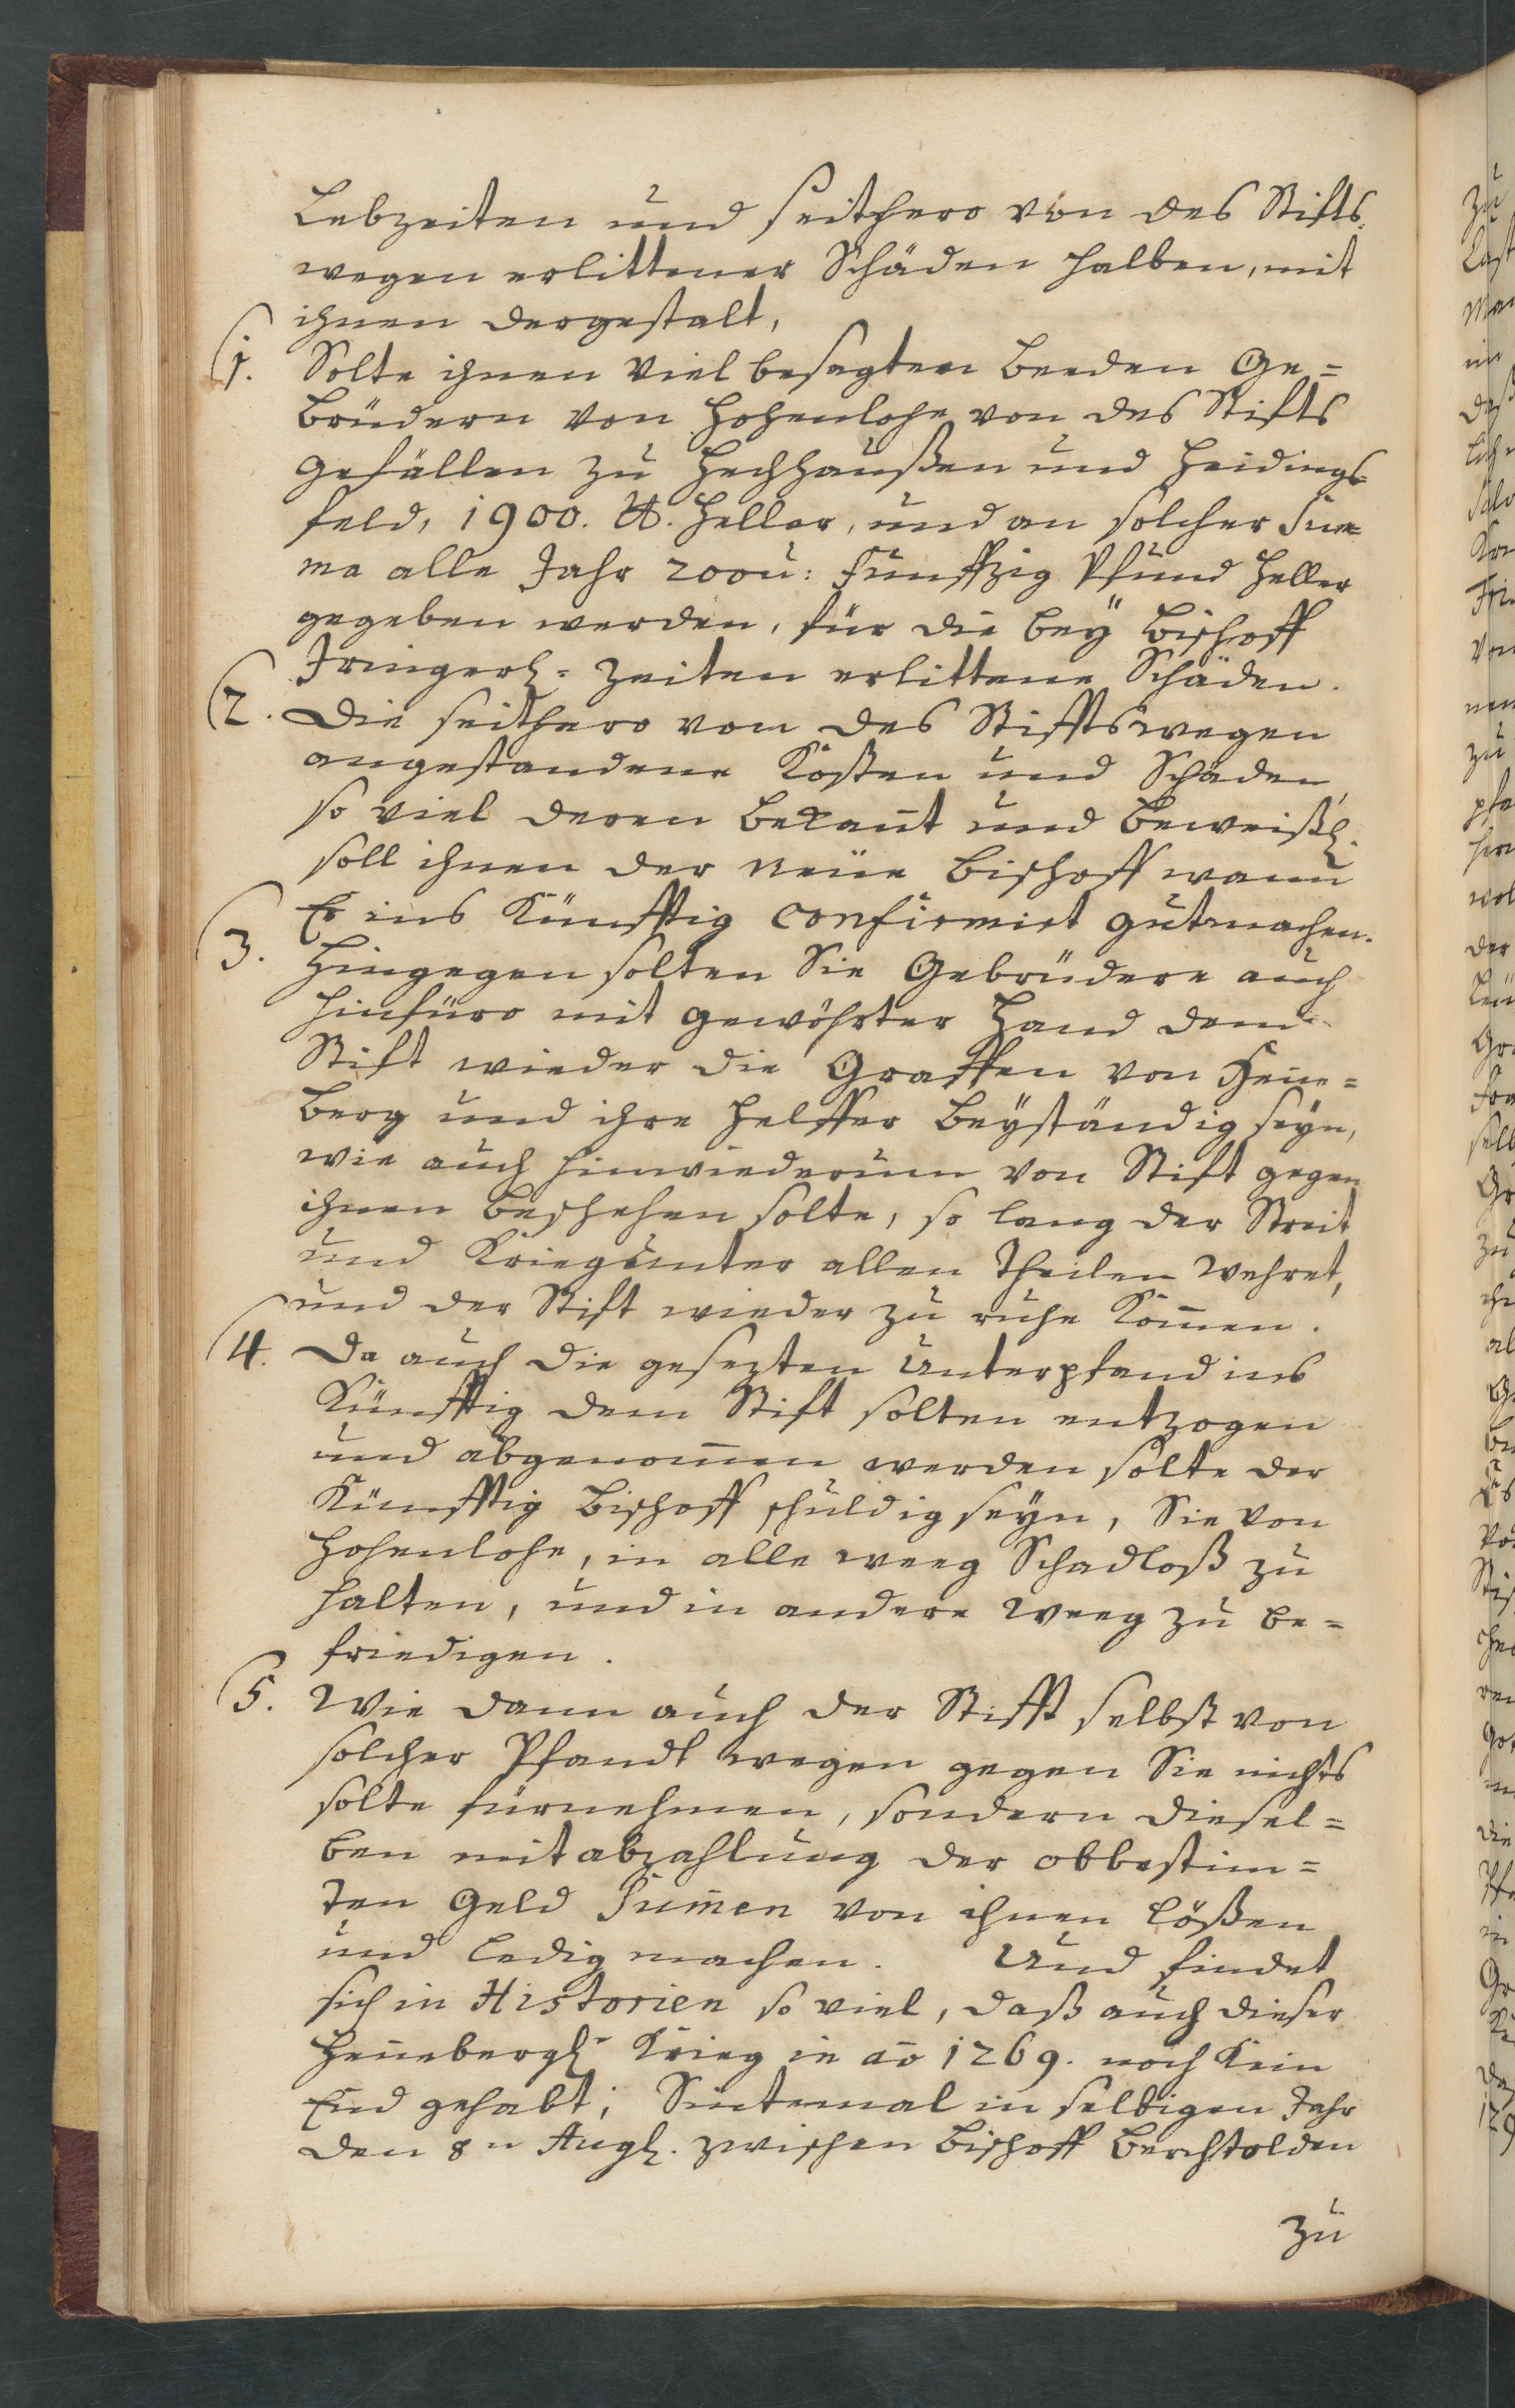 Lebzeiten und seithero von des Stifts
wegen erlittener Schäden halben, mit
ihnen dergestalt,
(1. Solte ihnen viel besagten beeden Ge=
brüdern von Hohenlohe von des Stifts
gefällen zu Hechhaußen und Heidings
feld, 1900. ℔. Heller, und an solcher Sum=
ma alle Jahr 200 u: Funffzig Pfund Heller
gegeben werden, für die beÿ Bischoff
Iringerl= zeiten erlittene Schäden.
(2. Die seithero von des Stiffts wegen
angestandene Kosten und Schäden
so viel deren bekañt und beweißl.
soll ihnen der neüe Bischoff wann
(3. Er ins Künfftig confirmirt gutmachen.
Hingegen solten Sie Gebrüdere auch
hinfüro mit gewöhrter Hand dem
Stift wieder die Graffen von Henn=
berg und ihre Helffer beÿständig seÿn,
wie auch hinwiederum von Stift gegen
ihnen beschehen solte, so lang der Streit
und Krieg unter allen Theilen wehret,
und der Stift wieder zu ruhe kom̃en.
(4. Da auch die gesezten Unterpfand ins
Künfftig dem Stift solten entzogen
und abgenom̃en werden solte der
Künfftig Bischoff schuldig seÿn, Sie von
Hohenlohe, in alle weeg Schadloß zu
halten, und in andere weeg zu be=
friedigen.
(5. Wie dann auch der Stifft selbst von
solcher Pfandt wegen gegen Sie nichts
solte fürnehmen, sondern diesel=
ben mit abzahlung der obbestim=
ten Geld Sum̃en von ihnen lößen
und ledig machen. Und findet
sich in Historien so viel, daß auch dieser
Heñebergl. Krieg in aõ 1269. noch kein
End gehabt; Sintemal in selbigen Jahr
den 8n Augl. zwischen Bischoff Berchtolden
zu